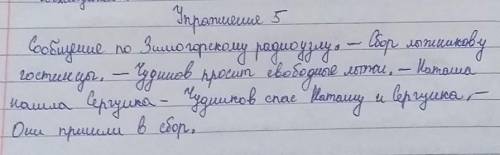 Упражнение 5
Сообщение по Зимогорскому радиоузлу. — Сбор лыжников у
гостиницы. — Чудинов просит свободные лыжи. — Наташа
нашла Сергушка - Чудинов спас Наташу и Сергушка. —
Они пришли в сбор.